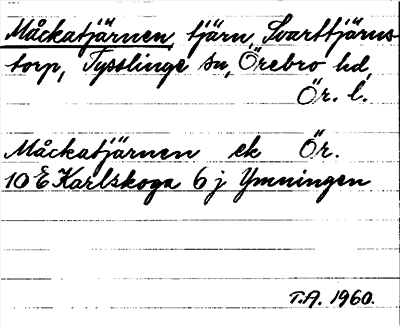 Måckatjärnen, tjärn, Svarttjärns-
torp, Tysslinge sn, Örebro hd,
Ör. l.
Måckatjärnen ek Ör.
10 E Karlskoga 6 j Ymningen
T.A. 1960.